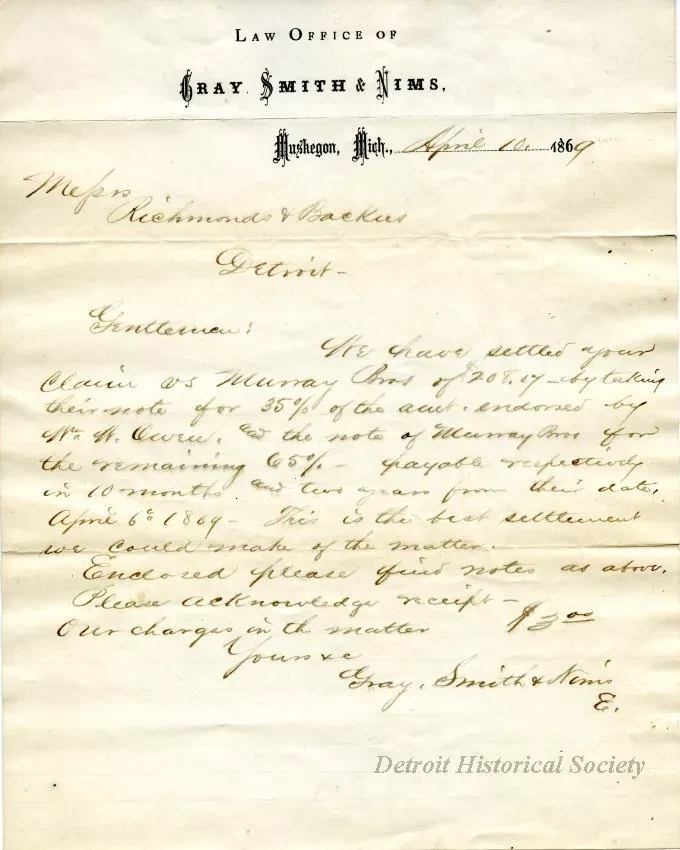 LAW OFFICE OF
GRAY. SMITH & NIMS,
Muskegon, Mich., April 10. 1869
Messrs
Richmonds & Backus
Detroit –
Gentlemen:
We have settled your
claim vs Murray Bros of $208.07 – by taking
their note for 35% of the amt. endorsed by
Wm W. Owen. and the note of Murray Bros for
the remaining 65% – payable respectively
in 10 months and two years from their date,
April 6th 1869 – This is the best settlement
we could make of the matter.
Enclosed please find notes as above.
Please acknowledge receipt –
Our charges in th matter $3 00
Yours &c
Gray, Smith & Nims
E.
Detroit Historical Society